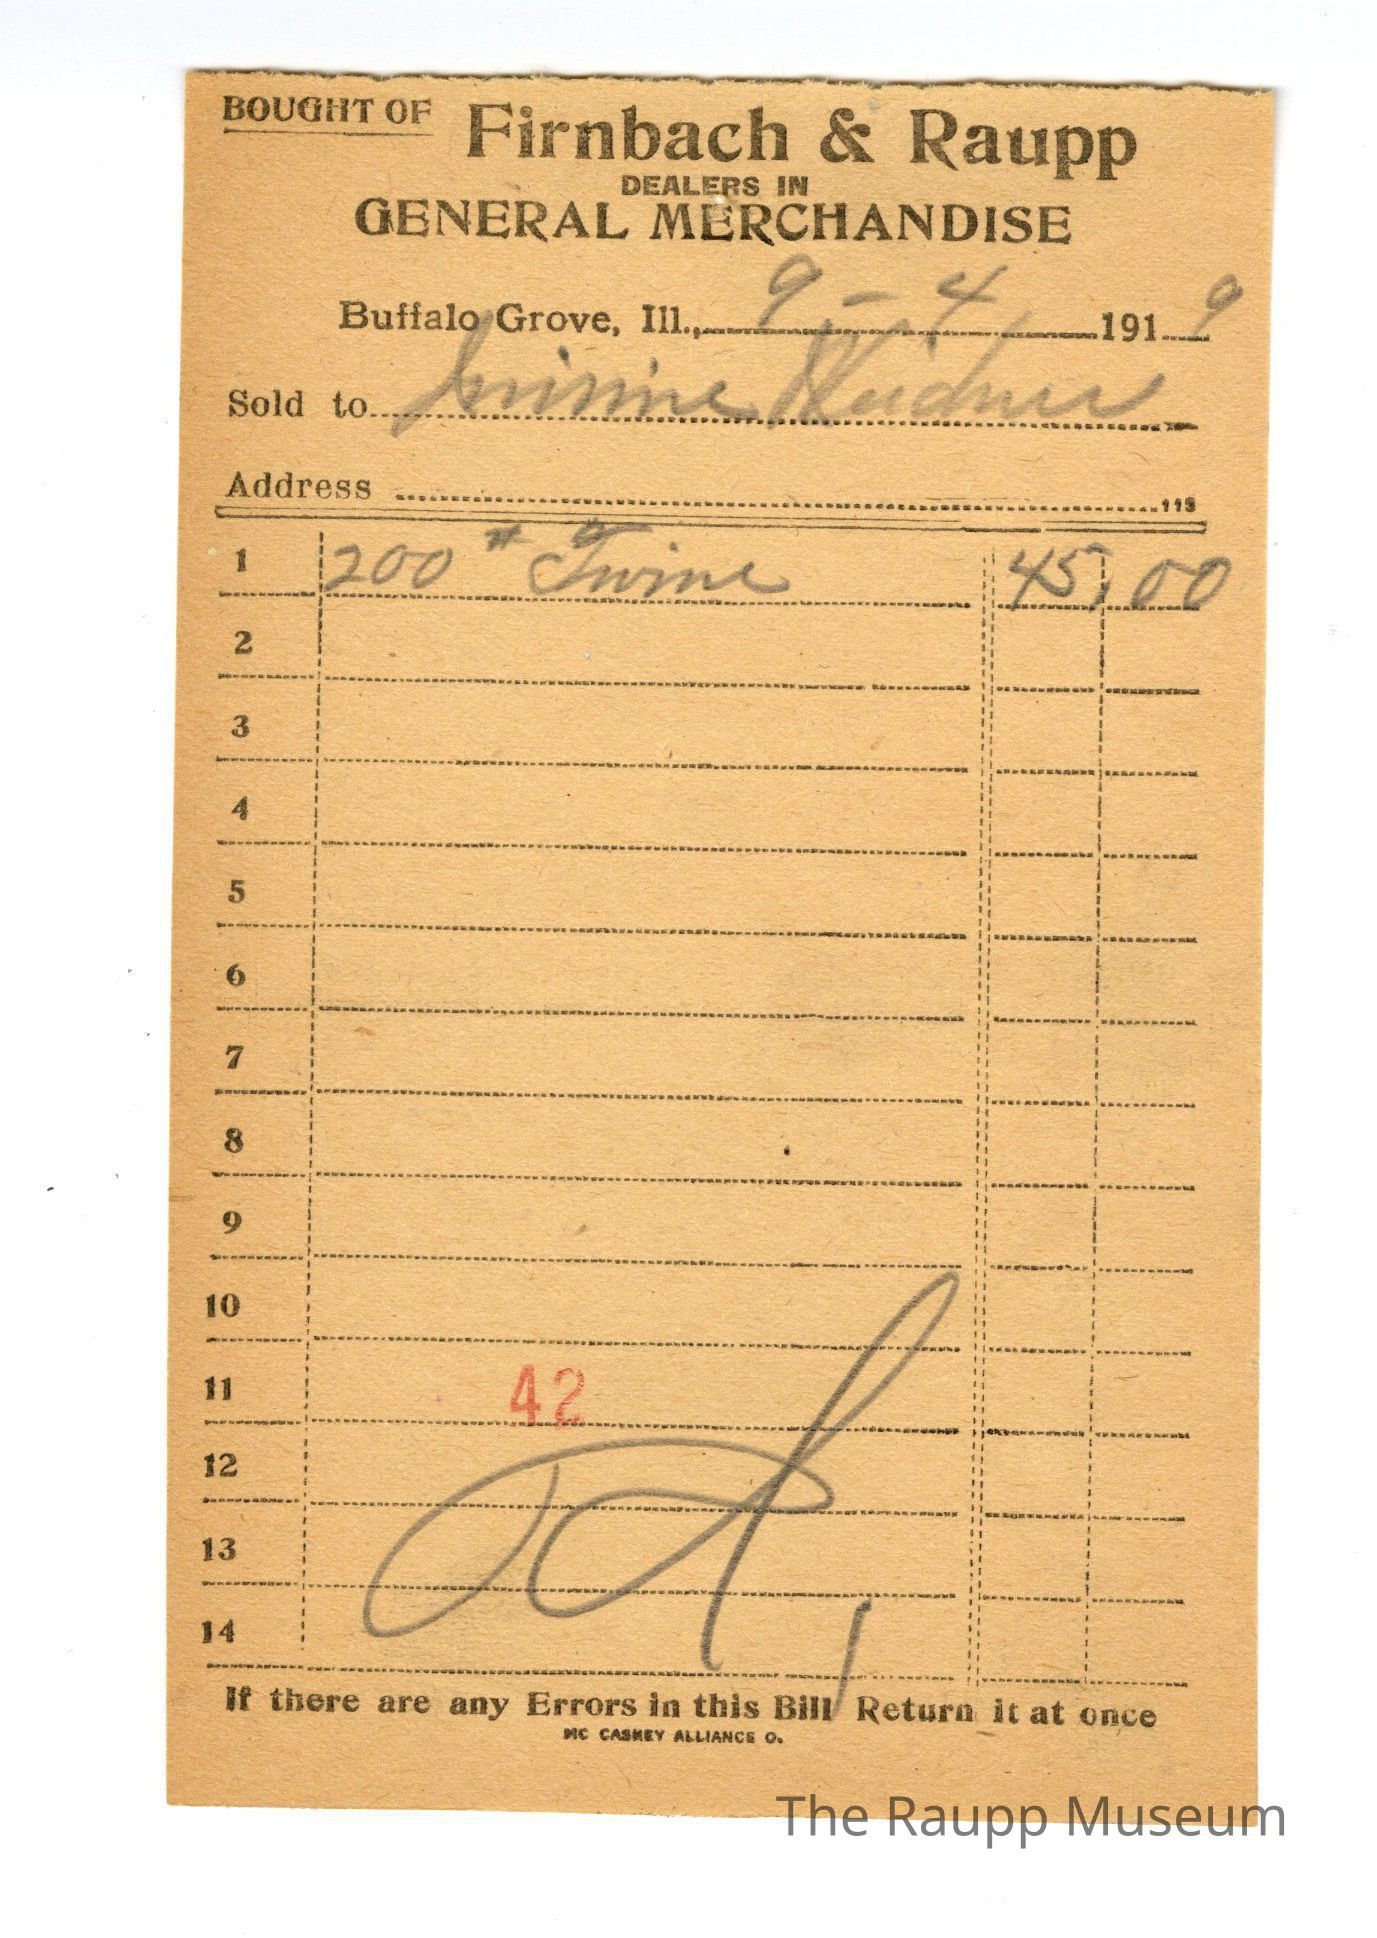 BOUGHT OF Firnbach & Raupp
DEALERS IN
GENERAL MERCHANDISE
Buffalo Grove, Ill., 9-4 1919
Sold to Weidner
Address 113
1 200 # Twine 45,00
2
3
4
5
6
7
8
9
10
11 42
12
13
14
If there are any Errors in this Bill Return it at once
MC CASKEY ALLIANCE O.
The Raupp Museum